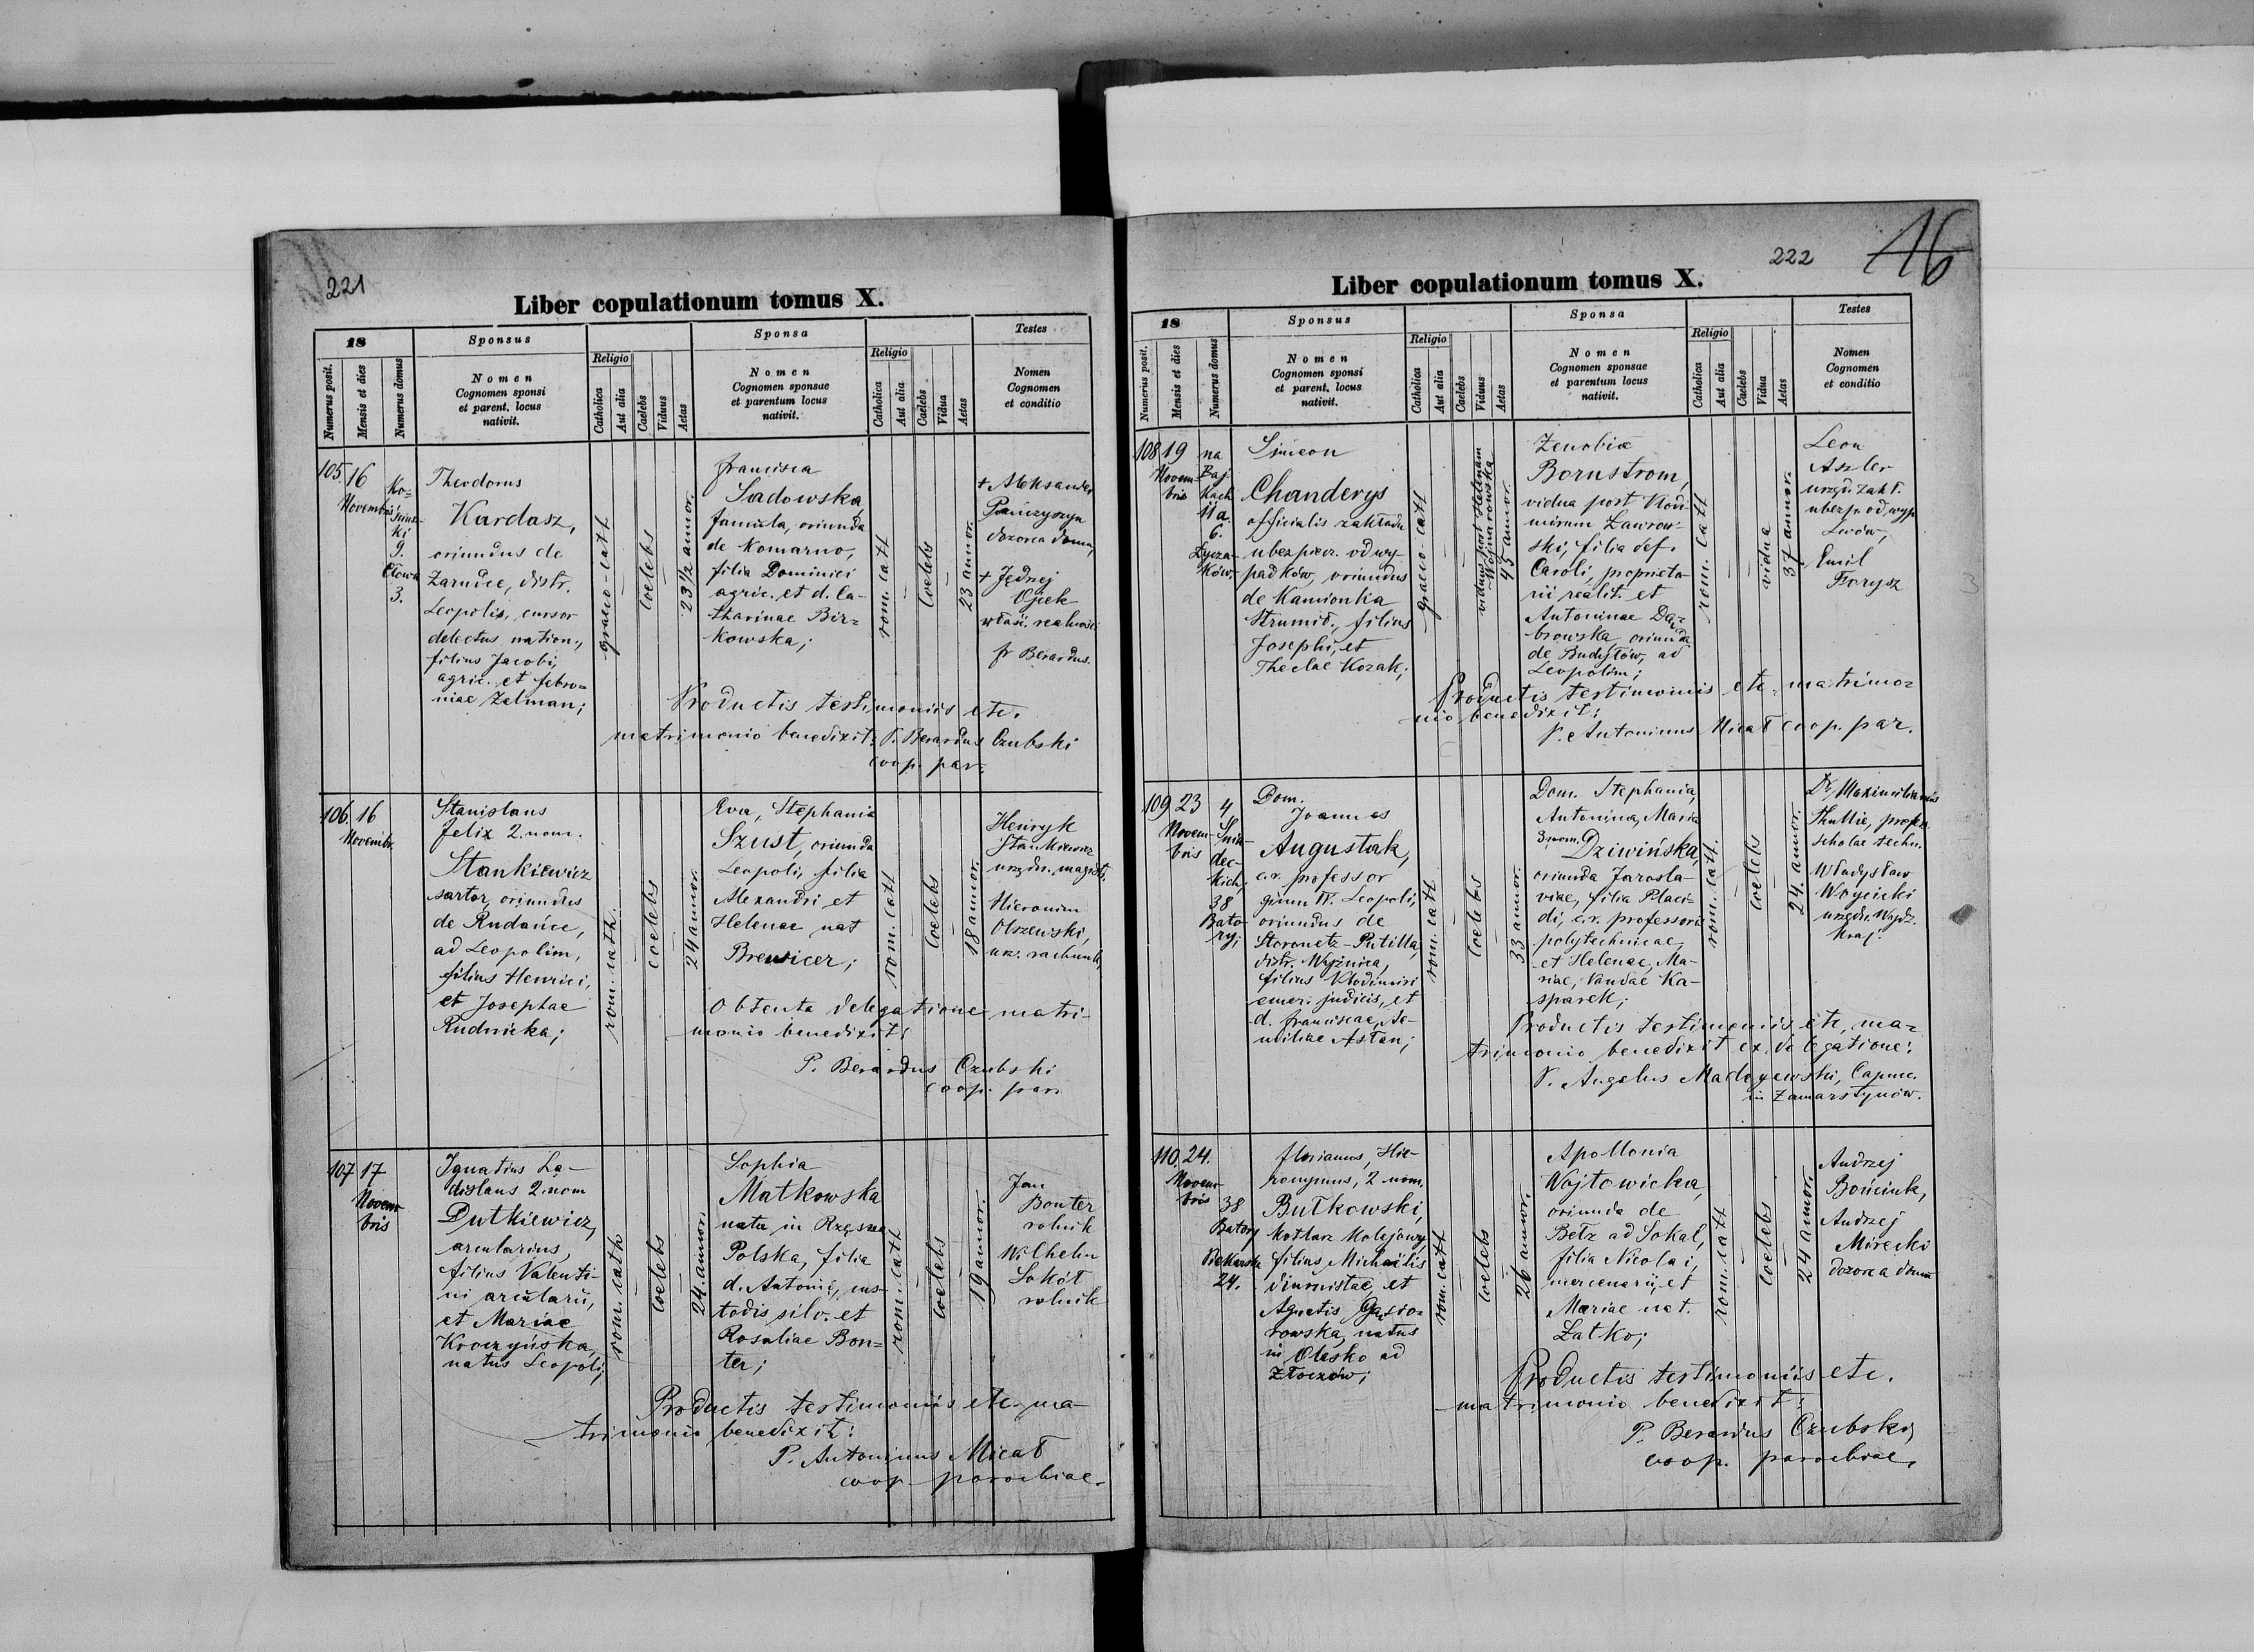 221
Liber copulationum tomus X.
18
Numerus posit.
Mensis et dies
Numerus domus
Sponsus
Nomen
Cognomen sponsi
et parent. locus
nativit.
Religio
Catholica
Aut alia
Caelebs
Viduus
Aetas
Sponsa
Nomen
Cognomen sponsae
et parentum locus
nativit.
Religio
Catholica
Aut alia
Caelebs
Vidua
Aetas
Testes
Nomen
Cognomen
et conditio
105. 16
Novembris
9.
3.
Theodorus
Kardasz,
oriundus de
Zarudce, distr.
Leopolis, cursor
delectus nation.,
filius Jacobi,
agric. et febro=
niae Zelman;
graeco-catt.
coelebs
23 1/2 annor.
francisca
Sadowska,
famula, oriunda
de Komarno,
filia Dominici
agric. et d. Ca-
tharinae Bir=
kowska;
rom. catt
coelebs
23 annor.
+ Aleksander
Pańczyszyn
dozorca domu,
+ Jędrzej
Ojek
właśc. realności
fr Berardus.
Productis testimoniis etc.
matrimonio benedixit: P. Berardus Czubski
coop. par.
106. 16
Novembr.
Stanislaus
felix 2. nom.
Stankiewicz
sartor, oriundus
de Rudańce,
ad Leopolim,
filius Henrici,
et Josephae
Rudnicka;
rom. cath.
coelebs
24 annor.
Eva, Stephania
Szust, oriunda
Leopoli, filia
Alexandri et
Helenae nat
Brewicer;
rom. catt
coelebs
18 annor.
Henryk
Stankiewicz
urzędn. magistr.
Hieronim
Olszewski,
urz. rachunk.
Obtenta delegatione matri-
monio benedixit:
P. Berardus Czubski
coop. par.
107 17
Novem-
bris
Ignatius La-
dislaus 2. nom
Dutkiewicz,
arcularius,
filius Valenti-
ni arcularii,
et Mariae
Kroczyńska,
natus Leopoli;
rom. cath
coelebs
24. annor.
Sophia
Matkowska
nata in Rzęsna
Polska, filia
d. Antonii, cus-
todis silv. et
Rosaliae Bon=
ter;
rom. cath
coelebs
19 annor.
Jan
Bonter
rolnik
Wilhelm
Sokół
rolnik
Productis testimoniis etc. ma-
trimonio benedixit:
P. Antoninus Micał
coop. parochiae.
222
16
Liber copulationum tomus X.
18
Numerus posit.
Mensis et dies
Numerus domus
Sponsus
Nomen
Cognomen sponsi
et parent. locus
nativit.
Religio
Catholica
Aut alia
Caelebs
Viduus
Aetas
Sponsa
Nomen
Cognomen sponsae
et parentum locus
nativit.
Religio
Catholica
Aut alia
Caelebs
Vidua
Aetas
Testes
Nomen
Cognomen
et conditio
108 19
Novem-
bris
na
Baj-
kach
11a.
6.
Łycza-
ków.
Simeon
Chanderys
officialis zakładu
ubezpiecz. od wy-
padków, oriundus
de Kamionka
Strumił., filius
Josephi, et
Theclae Kozak;
graeco-catt
viduus post Helenam
Wojnarowska
45 annor.
Zenobia
Bornstrom,
vidua post Vlodi-
mirum Ławrow-
ski, filia def.
Caroli, proprieta-
rii realit. et
Antoninae Dą-
browska, oriunda
de Budyłów, ad
Leopolim;
rom. catt
vidua
37 annor.
Leon
Aszler
urzęd. zakł.
ubezp. od wyp.
Lwów,
Emil
Florysz
Productis testimoniis etc. matrimo=
nio benedixit:
P. Antoninus Micał coop. par.
109 23
Novem-
bris
4
Śnia-
dec-
kich,
38
Bato-
ry;
Dom.
Joannes
Augustak,
c.r. professor
gimn IV. Leopoli,
oriundus de
Storonetz-Putilla,
distr. Wyżnica,
filius Vlodimiri
emer. judicis, et
d. franciscae, Ae-
miliae Astan;
rom. catt
coelebs
33 annor.
Dom. Stephania,
Antonina, Maria
3 nom.
Dziwińska,
oriunda Jarosla-
viae, filia Placi-
di, c.r. professoris
polytechnicae,
et Helenae, Ma-
riae, Vandae Ka-
sparek;
rom. catt.
coelebs
24. annor.
Dr. Maximilianus
Thullie, profess.
scholae techn.
Władysław
Woycicki
urzędn. Wydz.
kraj.
Productis testimoniis etc, ma=
trimonio benedixit ex. delegatione:
P. Angelus Madeyewski, Capuc.
in Zamarstynów.
110. 24.
Novem-
bris
38
Batory
Piekarska
24.
florianus, Hie-
ronymus, 2 nom.
Butkowski,
kotlarz kolejowy,
filius Michaëlis
diurnistae, et
Agnetis Gąsio=
rowska, natus
in Olesko ad
Złoczów;
rom. catt
coelebs
26 annor.
Apollonia
Wojtowicka,
oriunda de
Bełz ad Sokal,
filia Nicolai,
mercenarii, et
Mariae nat.
Łatko;
rom. catt
coelebs
24 annor.
Andrzej
Bońciuk,
Andrzej
Mirecki
dozorca domu
Productis testimoniis etc.
matrimonio benedixit:
P. Berardus Czubski,
coop. parochiae.